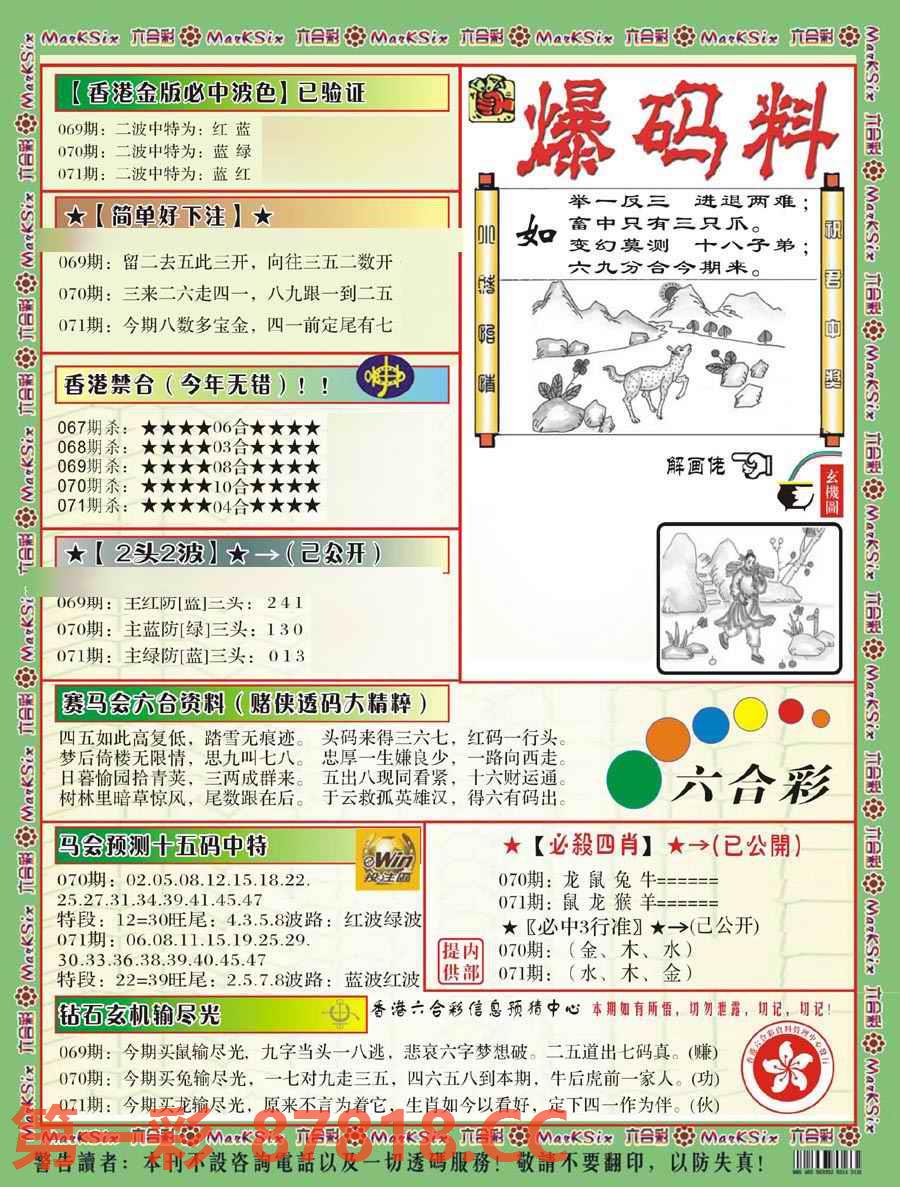 MarKSix 六合彩 MarKSix 六合彩 MarKSix 六合彩 MarKSix 六合彩 MarKSix 六合彩
【香港金版必中波色】已验证
069期：二波中特为：红 蓝
070期：二波中特为：蓝 绿
071期：二波中特为：蓝 红
★【简单好下注】★
069期：留二去五此三开，向往三五二数开
070期：三来二六走四一，八九跟一到二五
071期：今期八数多宝金，四一前定尾有七
香港禁合（今年无错）！！
067期杀：★★★★06合★★★★
068期杀：★★★★03合★★★★
069期杀：★★★★08合★★★★
070期杀：★★★★10合★★★★
071期杀：★★★★04合★★★★
★【 2头2波】★→(已公开)
069期：主红防[蓝]三头：2 4 1
070期：主蓝防[绿]三头：1 3 0
071期：主绿防[蓝]三头：0 1 3
爆码料
如
举一反三 进退两难；
畜中只有三只爪。
变幻莫测 十八子弟；
六九分合今期来。
祝君中奖
解画佬
玄機圖
赛马会六合资料（赌侠透码大精粹）
四五如此高复低，踏雪无痕迹。 头码来得三六七，红码一行头。
梦后倚楼无限情，思九叫七八。 忠厚一生嫌良少，一路向西走。
日暮愉园拾青荚，三两成群来。 五出八现同看紧，十六财运通。
树林里暗草惊风，尾数跟在后。 于云救孤英雄汉，得六有码出。
六合彩
马会预测十五码中特
eWin
投注區
070期：02.05.08.12.15.18.22.
25.27.31.34.39.41.45.47
特段：12=30旺尾：4.3.5.8波路：红波绿波
071期：06.08.11.15.19.25.29.
30.33.36.38.39.40.45.47
特段：22=39旺尾：2.5.7.8波路：蓝波红波
★【必殺四肖】★→(已公開)
070期：龙 鼠 兔 牛======
071期：鼠 龙 猴 羊======
★〖必中3行准〗★→(已公开)
070期：（金、木、水）
071期：（水、木、金）
提内
供部
钻石玄机输尽光
香港六合彩信息预猜中心 本期如有所悟，切勿泄露，切记，切记！
069期：今期买鼠输尽光，九字当头一八逃，悲哀六字梦想破。二五道出七码真。(赚)
070期：今期买兔输尽光，一七对九走三五，四六五八到本期，牛后虎前一家人。(功)
071期：今期买龙输尽光，原来不言为着它，生肖如今以看好，定下四一作为伴。(伙)
第一彩 87818.CC
MarKSix 六合彩 MarKSix 六合彩 MarKSix 六合彩 MarKSix 六合彩 MarKSix 六合彩
警告讀者：本刊不設咨詢電話以及一切透碼服務！敬請不要翻印，以防失真！